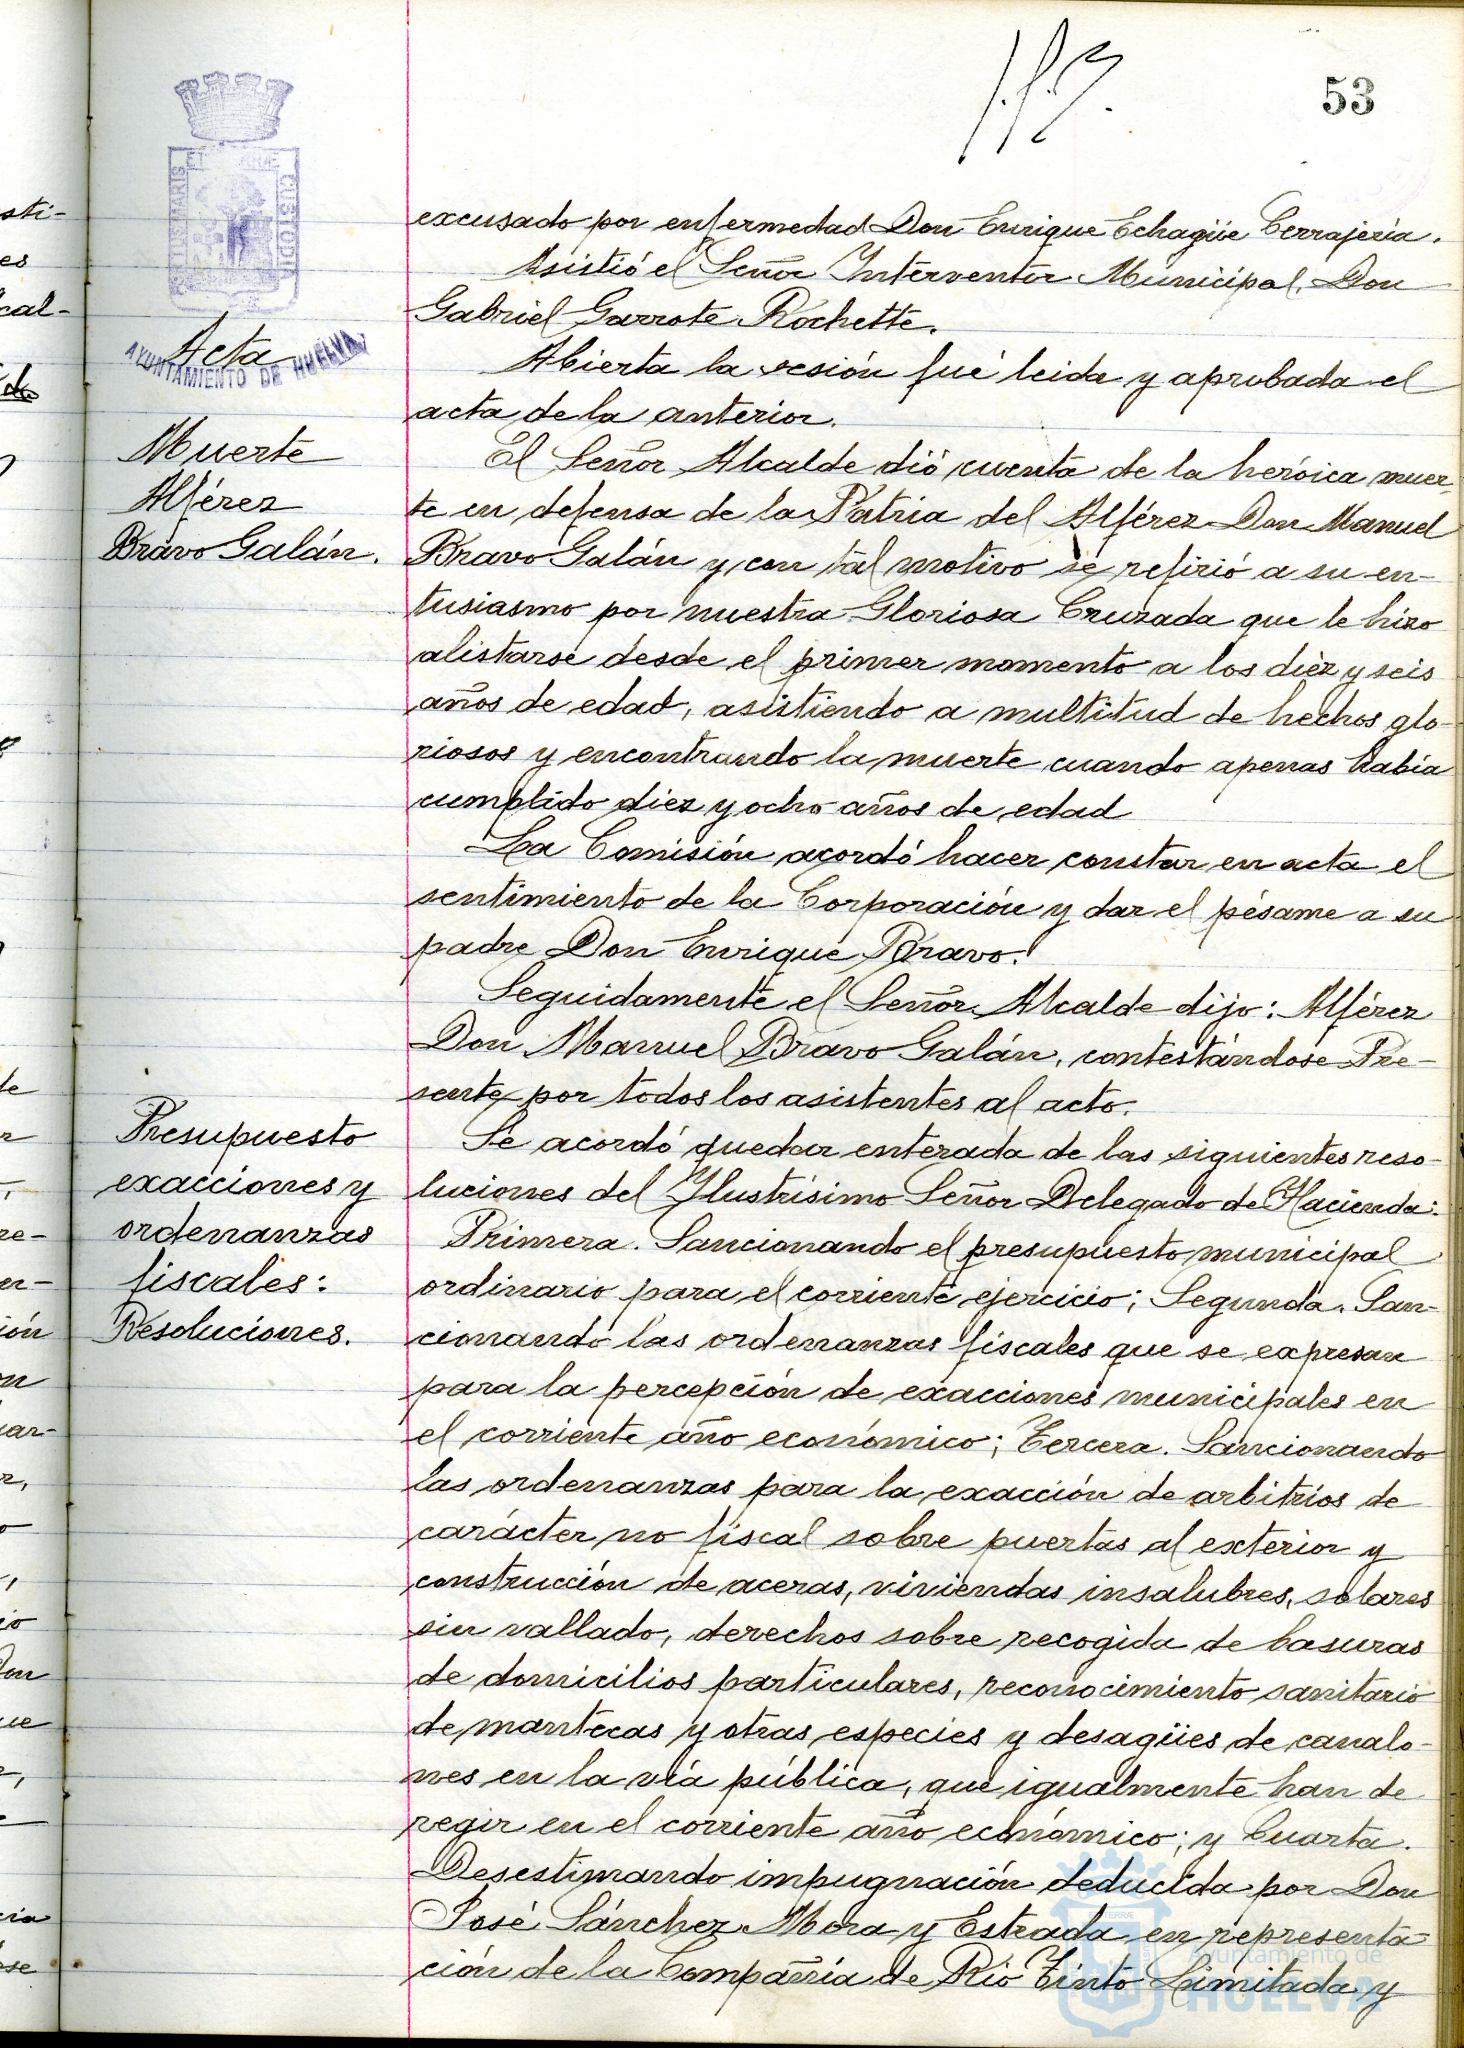 53
PORTUS MARIS ET TERRAE CUSTODIA
AYUNTAMIENTO DE HUELVA
Acta
Muerte
Alférez
Bravo Galán.
Presupuesto
exacciones y
ordenanzas
fiscales:
Resoluciones.
excusado por enfermedad Don Enrique Echagüe Cerrajería.
Asistió el Señor Interventor Municipal, Don
Gabriel Garrote Rochette.
Abierta la sesión fué leida y aprobada el
acta de la anterior.
El Señor Alcalde dió cuenta de la heróica muer-
te en defensa de la Patria del Alférez Don Manuel
Bravo Galán y con tál motivo se refirió a su en-
tusiasmo por nuestra Gloriosa Cruzada que le hizo
alistarse desde el primer momento a los diez y seis
años de edad, asistiendo a multitud de hechos glo-
riosos y encontrando la muerte cuando apenas había
cumplido diez y ocho años de edad
La Comisión acordó hacer constar en acta el
sentimiento de la Corporación y dar el pésame a su
padre Don Enrique Bravo.
Seguidamente el Señor Alcalde dijo: Alférez
Don Manuel Bravo Galán, contestándose Pre-
sente por todos los asistentes al acto.
Se acordó quedar enterada de las siguientes reso-
luciones del Ylustrísimo Señor Delegado de Hacienda:
Primera. Sancionando el presupuesto municipal
ordinario para el corriente ejercicio; Segunda. San-
cionando las ordenanzas fiscales que se expresan
para la percepción de exacciones municipales en
el corriente año económico; Tercera. Sancionando
las ordenanzas para la exacción de arbitrios de
carácter no fiscal sobre puertas al exterior y
construcción de aceras, viviendas insalubres, solares
sin vallado, derechos sobre recogida de basuras
de domicilios particulares, reconocimiento sanitario
de mantecas y otras especies y desagües de canalo-
nes en la vía pública, que igualmente han de
regir en el corriente año económico; y Cuarta.
Desestimando impugnación deducida por Don
José Sánchez Mora y Estrada en representa-
ción de la Compañía de Río Tinto Limitada y
Ayuntamiento de
HUELVA